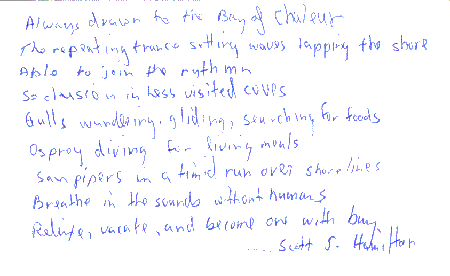 Always drawn to the Bay of Chaleur
The repeating trance setting waves lapping the shore
Able to join the rythmn
Seclusion in less visited coves
Gulls wandering, gliding, searching for foods
Osprey diving for living meals
Sanpipers in a timid run over shorelines
Breathe in the sounds without humans
Relinxe, vacate, and become one with bay
..... Scott S. Hamilton